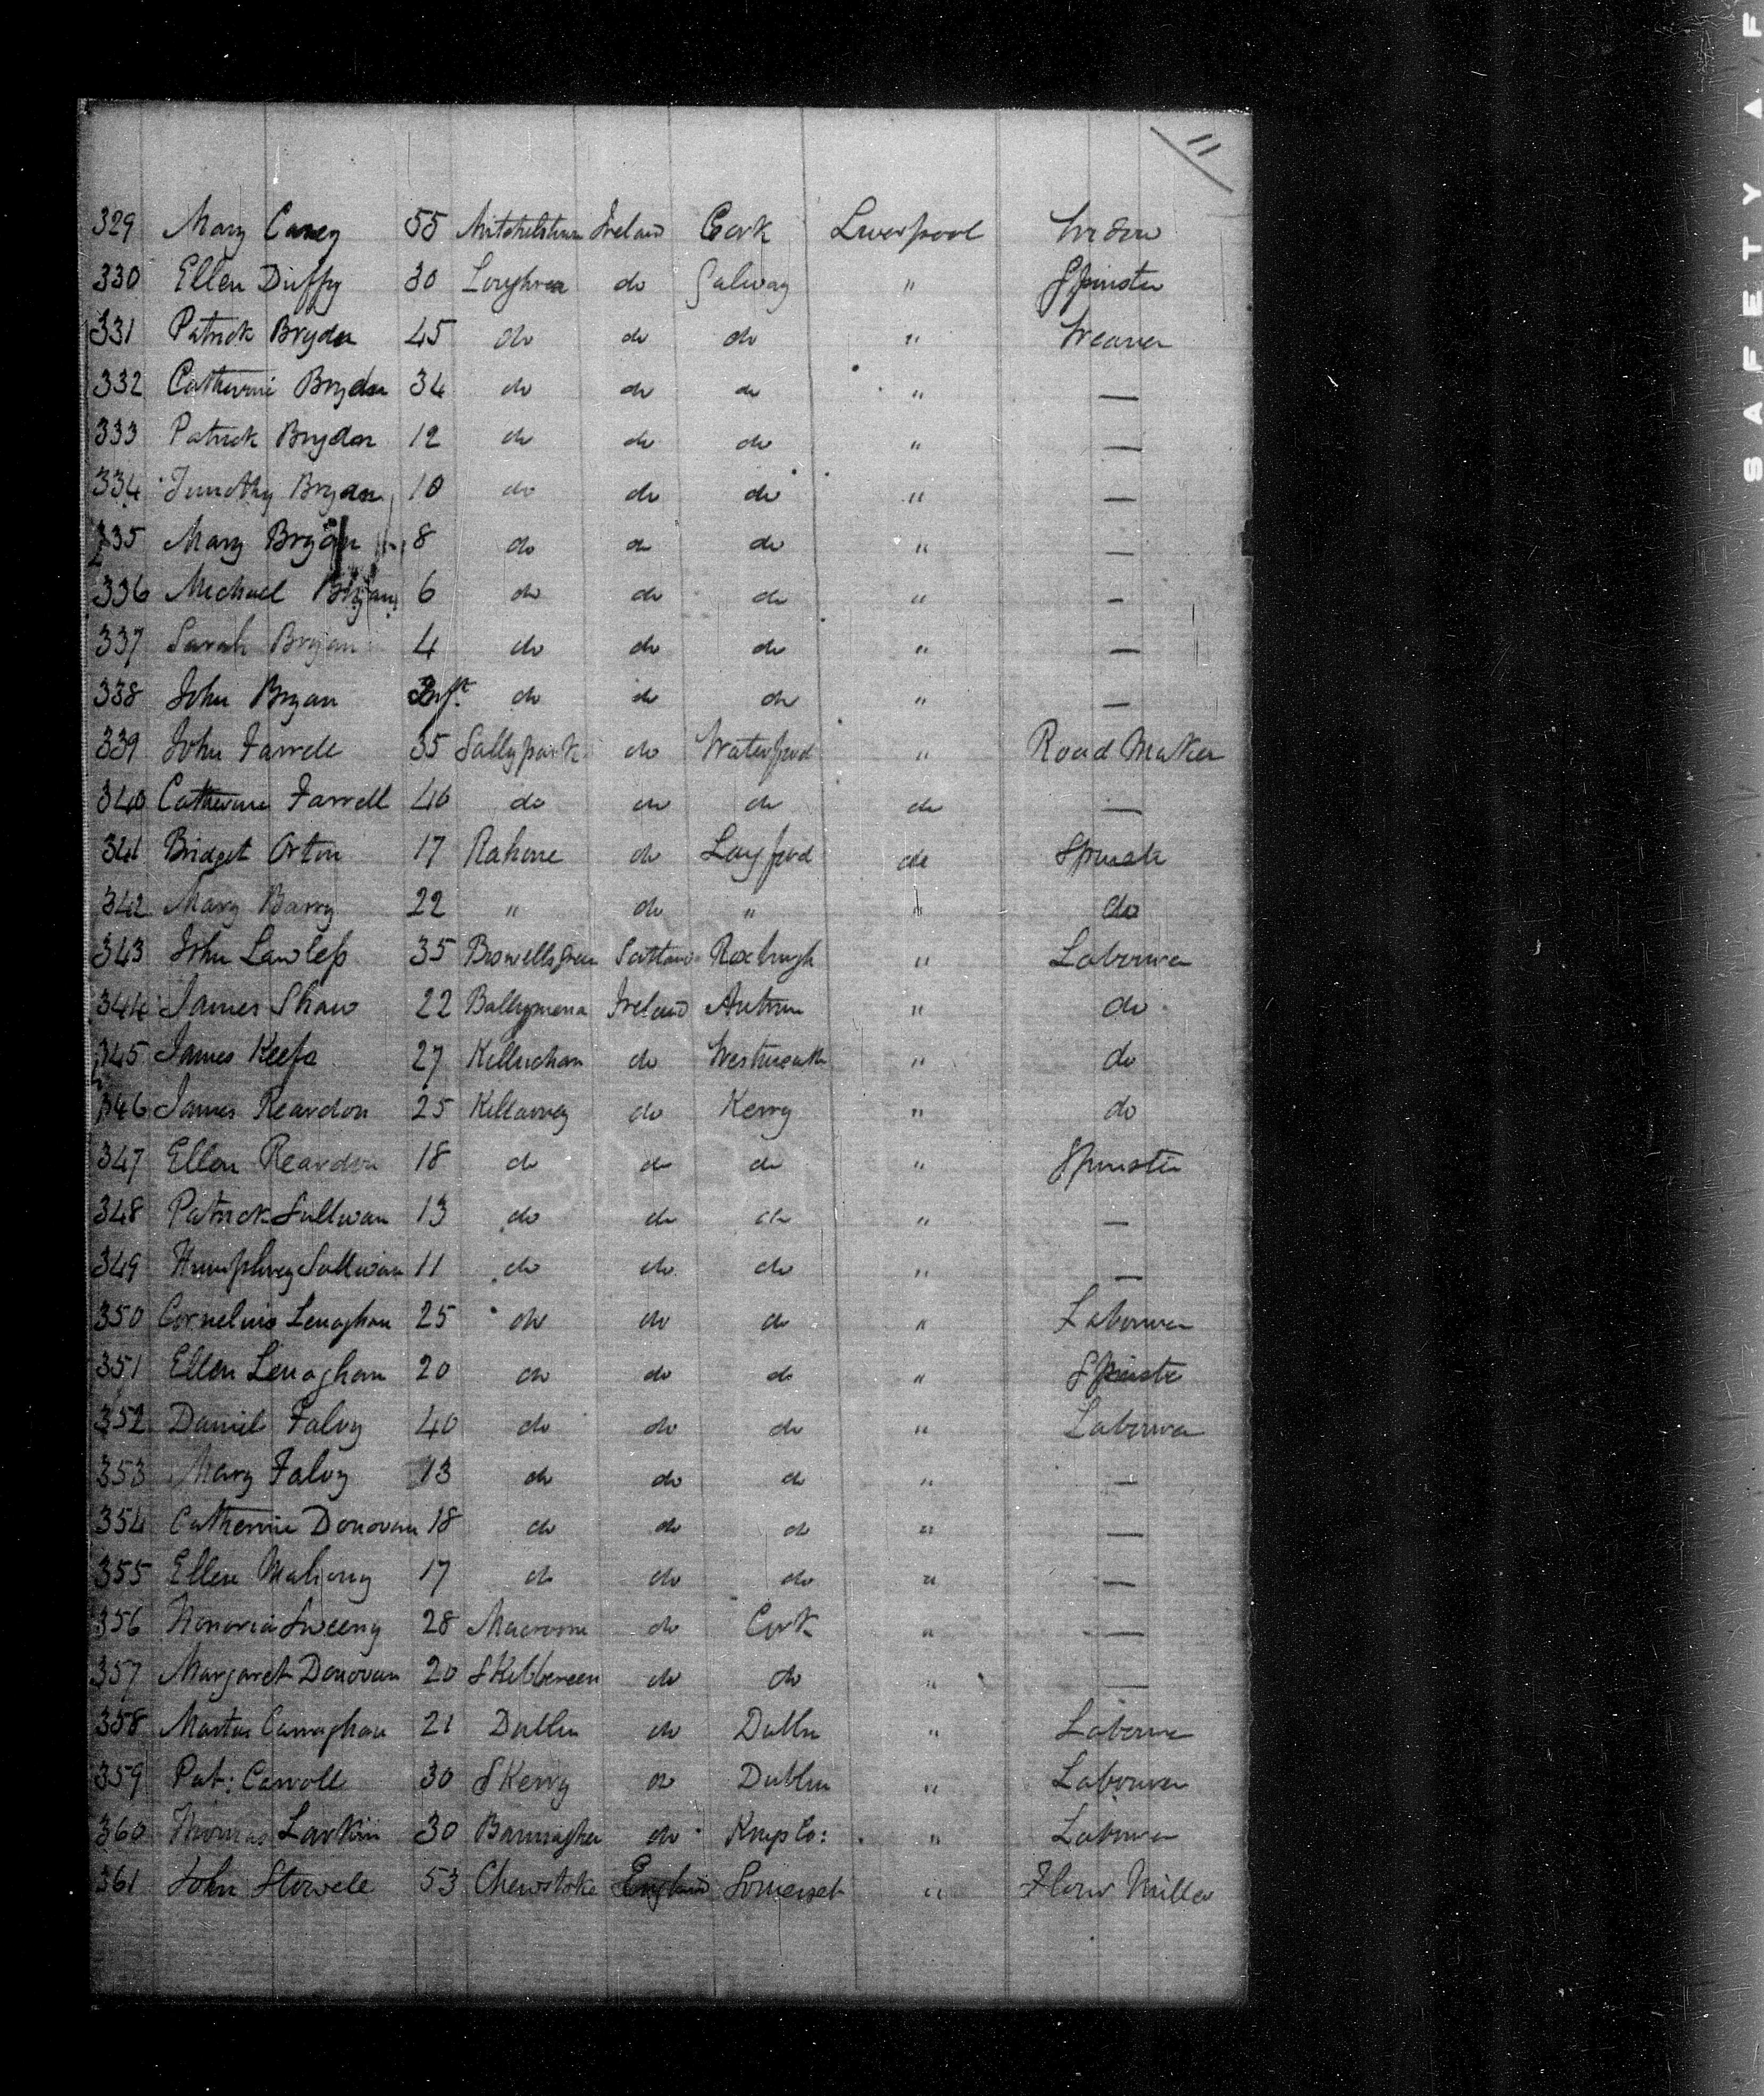 11
329 Mary Carey 55 Mitchelstown Ireland Cork Liverpool Widow
330 Ellen Duffy 30 Loughrea do Galway " Spinster
331 Patrick Bryden 45 do do do " Weaver
332 Catherine Bryden 34 do do do " —
333 Patrick Brydan 12 do do do " —
334 Timothy Brydan 10 do do do " —
335 Mary Bryan 8 do do do " —
336 Michael Bryan 6 do do do " —
337 Sarah Bryan 4 do do do " —
338 John Bryan Inft. do do do " —
339 John Farrell 35 Sallypark do Waterford " Road Maker
340 Catherine Farrell 40 do do do do —
341 Bridget Orton 17 Rahone do Longford do Spinster
342 Mary Barry 22 " do " " do
343 John Lawless 35 Scotland Roxburgh " Labourer
344 James Shaw 22 Ballymena Ireland Antrim " do
345 James Keefe 27 Killuchan do Westmeath " do
346 James Reardon 25 Killarney do Kerry " do
347 Ellen Reardon 18 do do do " Spinster
348 Patrick Sullivan 13 do do do " —
349 Humphrey Sullivan 11 do do do " —
350 Cornelius Lenaghan 25 do do do " Labourer
351 Ellen Lenaghan 20 do do do " Spinster
352 Daniel Falvy 40 do do do " Labourer
353 Mary Falvy 13 do do do " —
354 Catherine Donovan 18 do do do " —
355 Ellen Mahony 17 do do do " —
356 Honoria Sweeny 28 Macroom do Cork " —
357 Margaret Donovan 20 Skibbereen do do " —
358 Martin Carraghan 21 Dublin do Dublin " Labourer
359 Pat: Carroll 30 Skerry do Dublin " Labourer
360 Thomas Larkin 30 Bannagher do Kings Co: " Labourer
361 John Stowell 53 Chewstoke England Somerset " Flour Miller
SAFETY F